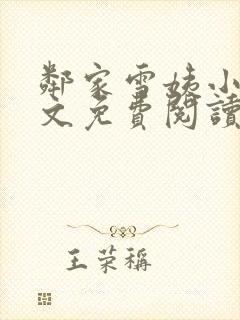 鄰家雪姨小
文免費閱讀
王荣稱